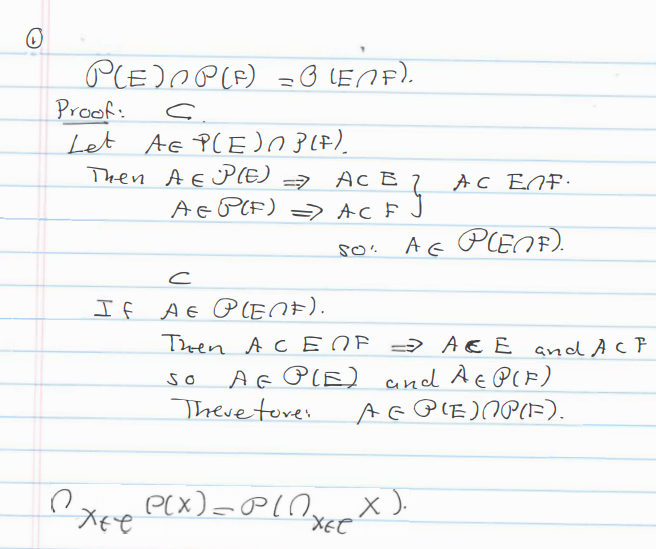 ①
𝒫(E)∩𝒫(F) = 𝒫(E∩F).
Proof: ⊂
Let A ∈ 𝒫(E)∩𝒫(F).
Then A ∈ 𝒫(E) ⇒ A ⊂ E } A ⊂ E∩F.
A ∈ 𝒫(F) ⇒ A ⊂ F
so: A ∈ 𝒫(E∩F).
⊂
If A ∈ 𝒫(E∩F).
Then A ⊂ E∩F ⇒ A ⊂ E and A ⊂ F
so A ∈ 𝒫(E) and A ∈ 𝒫(F)
Therefore: A ∈ 𝒫(E)∩𝒫(F).
∩_{X∈𝒞} 𝒫(X) = 𝒫(∩_{X∈𝒞} X).